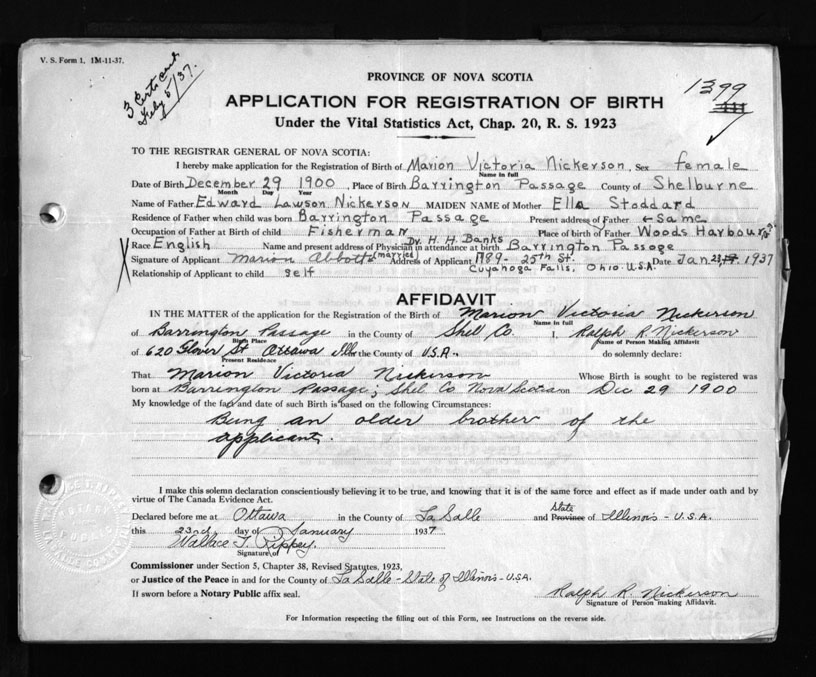 V. S. Form 1. 1M-11-37.
3 Certs
5/37.
1399
PROVINCE OF NOVA SCOTIA
APPLICATION FOR REGISTRATION OF BIRTH
Under the Vital Statistics Act, Chap. 20, R. S. 1923
TO THE REGISTRAR GENERAL OF NOVA SCOTIA:
I hereby make application for the Registration of Birth of Marion Victoria Nickerson, Sex female
Name in full
Date of Birth December 29 1900, Place of Birth Barrington Passage County of Shelburne
Month Day Year
Name of Father Edward Lawson Nickerson MAIDEN NAME of Mother Ella Stoddard
Residence of Father when child was born Barrington Passage Present address of Father ← same
Occupation of Father at Birth of child Fisherman Place of birth of Father Woods Harbour, N.S.
Race English Name and present address of Physician in attendance at Birth Dr. H. H. Banks Barrington Passage
Signature of Applicant Marion Abbott (married) Address of Applicant 1789-25th St. Date Jan. 23, 1937
Relationship of Applicant to child self Cuyahoga Falls, Ohio. U.S.A.
AFFIDAVIT
IN THE MATTER of the application for the Registration of the Birth of Marion Victoria Nickerson
Name in full
of Barrington Passage in the County of Shel Co. I, Ralph R. Nickerson
Birth Place Name of Person Making Affidavit
of 620 Glover St Ottawa Ill in the County of U.S.A. do solemnly declare:
Present Residence
That Marion Victoria Nickerson Whose Birth is sought to be registered was
born at Barrington Passage; Shel Co Nova Scotia on Dec 29 1900
My knowledge of the fact and date of such Birth is based on the following Circumstances:
Being an older brother of the
applicant.
I make this solemn declaration conscientiously believing it to be true, and knowing that it is of the same force and effect as if made under oath and by
virtue of The Canada Evidence Act.
Declared before me at Ottawa in the County of La Salle and State Province of Illinois - U.S.A.
this 23rd day of January 1937
Wallace T. Rippey.
Signature of
Commissioner under Section 5, Chapter 38, Revised Statutes, 1923,
or Justice of the Peace in and for the County of La Salle - State of Illinois - USA.
If sworn before a Notary Public affix seal.
Ralph R. Nickerson
Signature of Person making Affidavit.
For Information respecting the filling out of this Form, see Instructions on the reverse side.